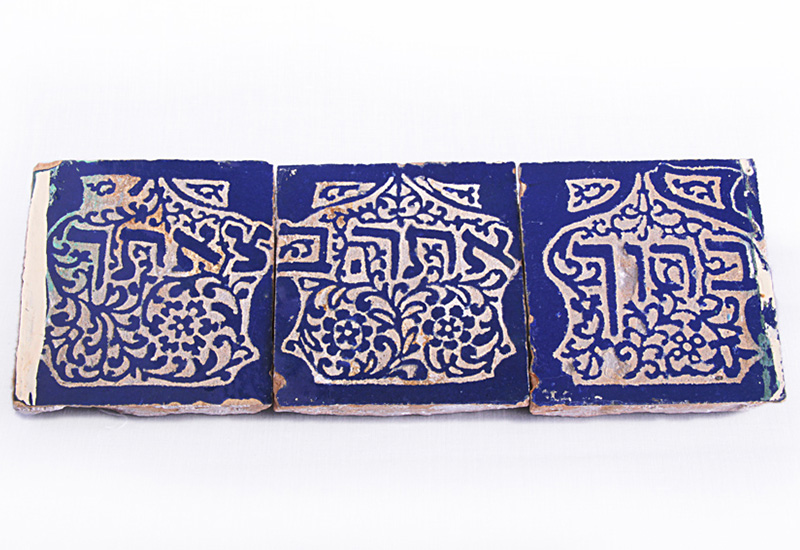 ברוך אתה בצאתך